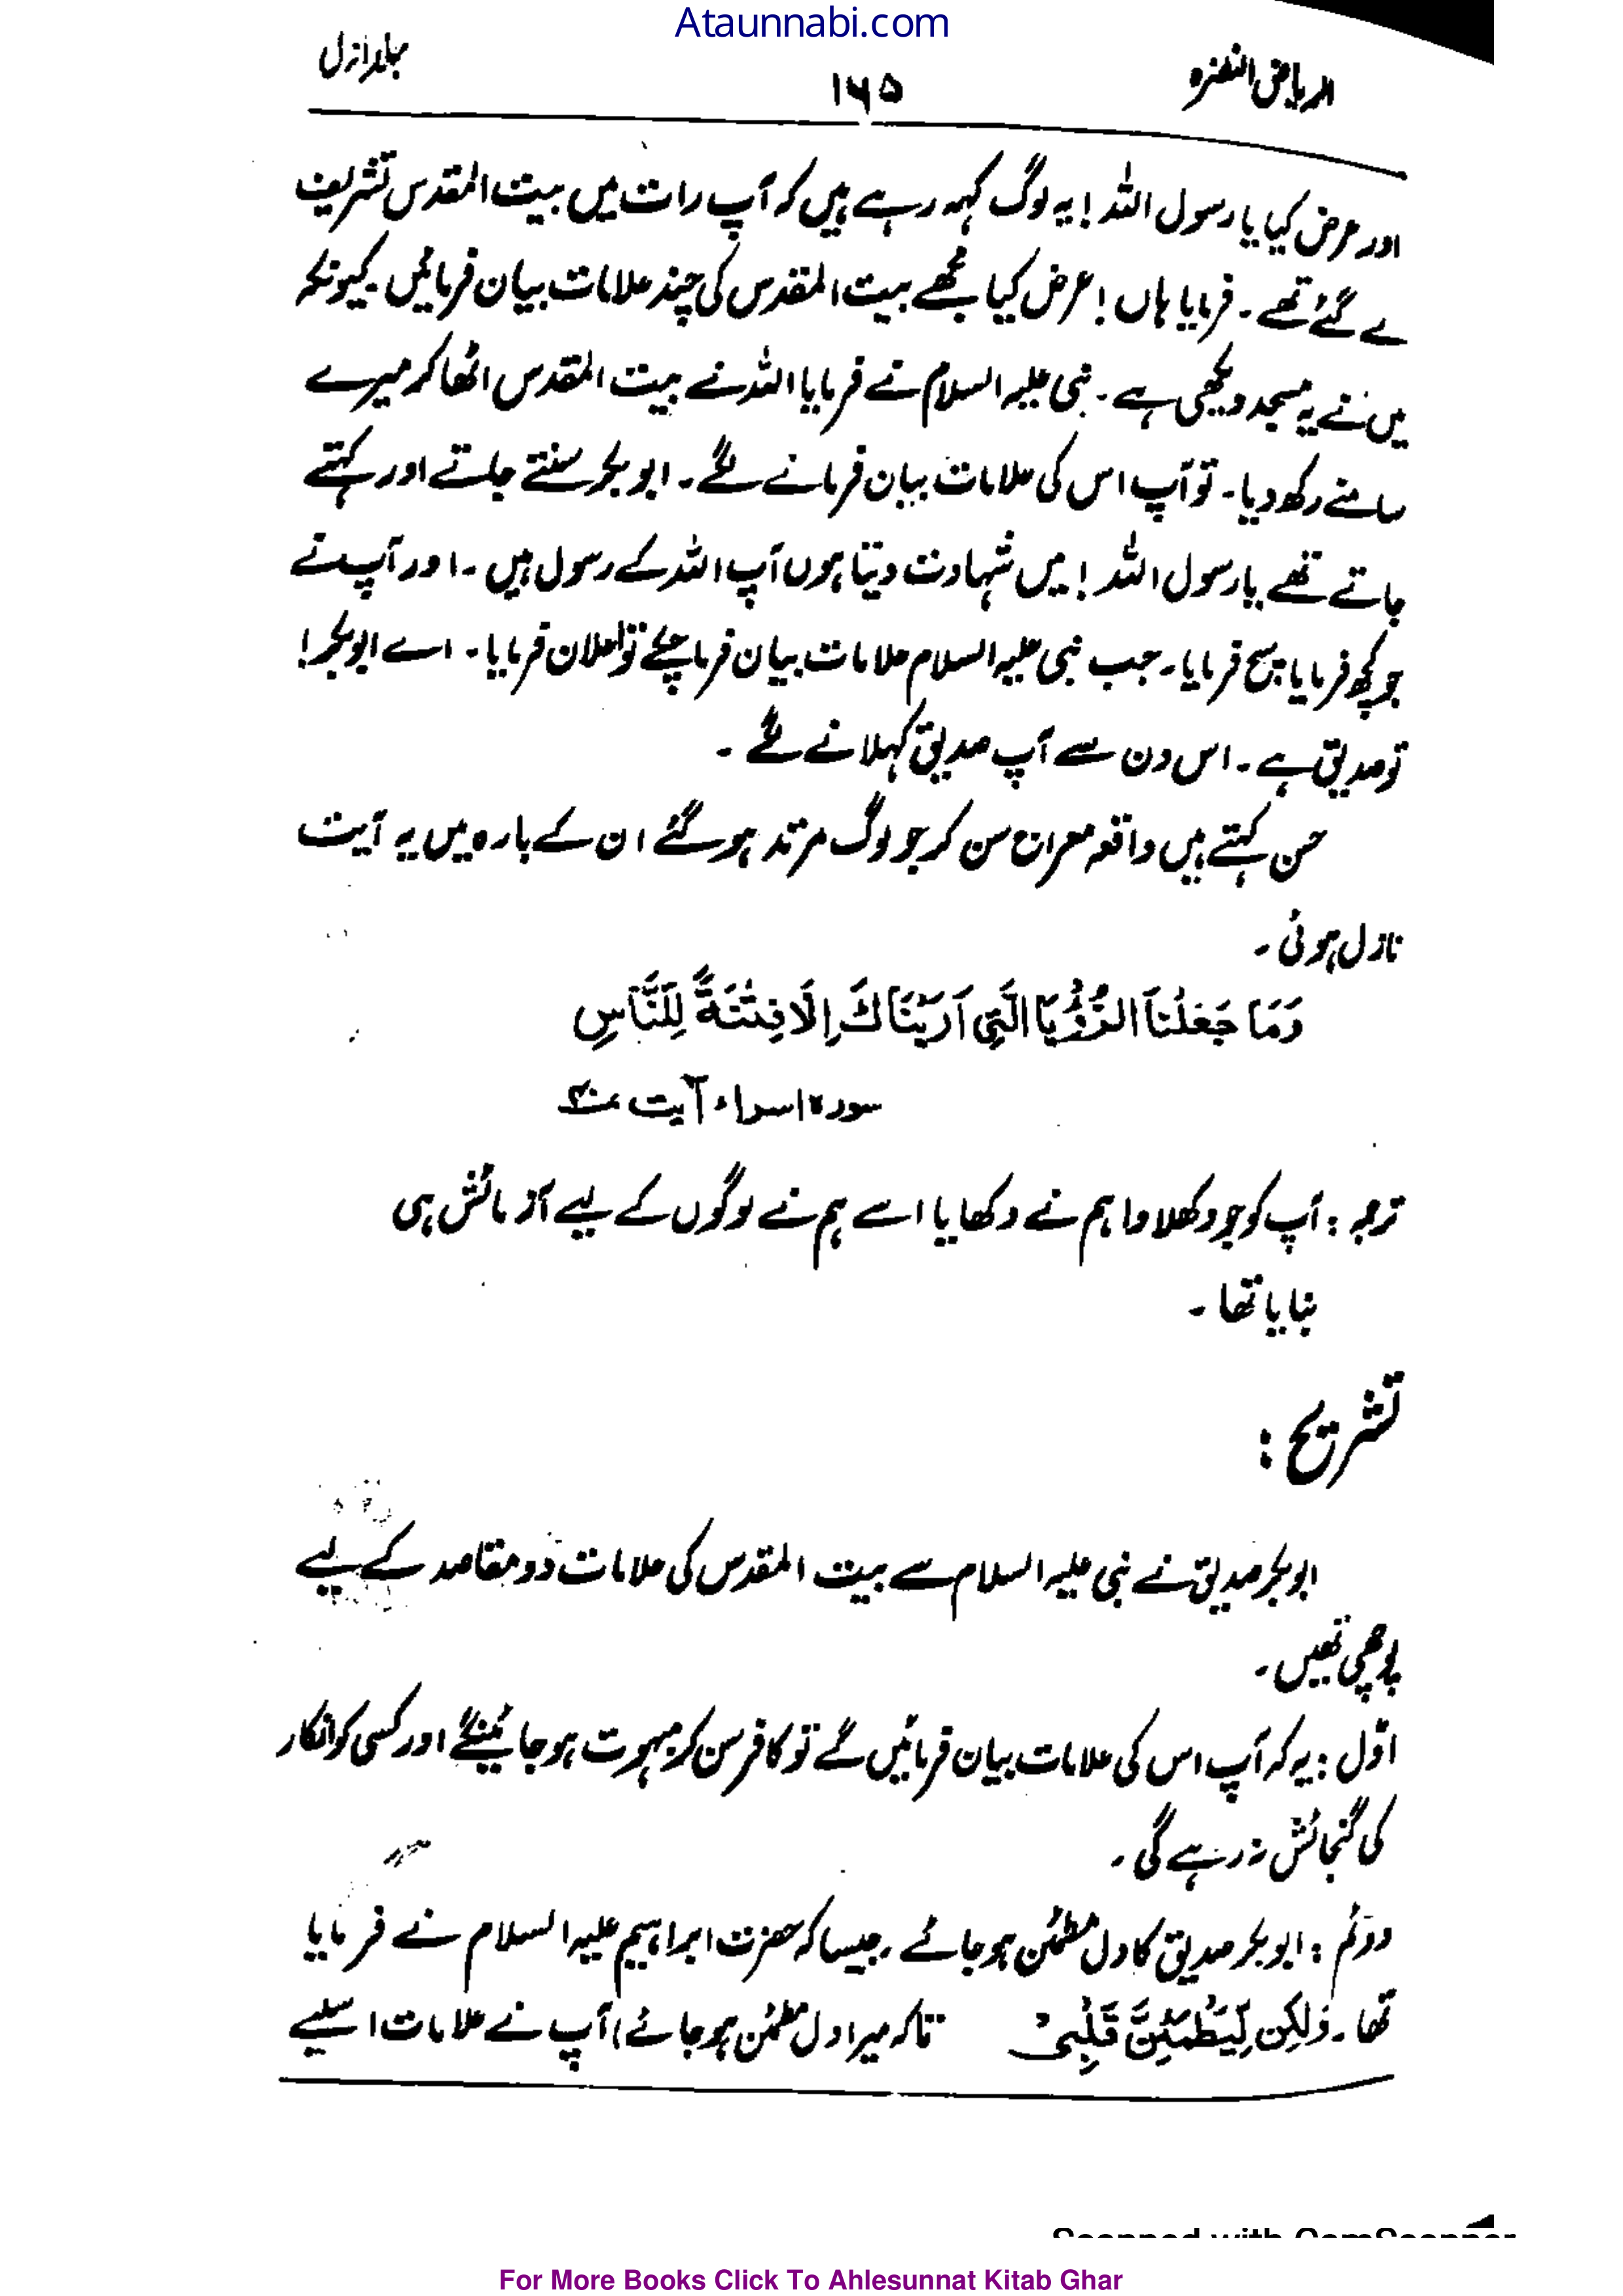 Ataunnabi.com
الریاض النضرہ ۱۶۵ جلد اول
اور عرض کیا یا رسول اللہ ! یہ لوگ کہہ رہے ہیں کہ آپ رات میں بیت المقدس تشریف
لے گئے تھے ۔ فرمایا ہاں ! عرض کیا مجھے بیت المقدس کی چند علامات بیان فرمائیں ۔ کیونکہ
میں نے یہ مسجد دیکھی ہے ۔ نبی علیہ السلام نے فرمایا اللہ نے بیت المقدس اٹھا کر میرے
سامنے رکھ دیا ۔ تو آپ اس کی علامات بیان فرمانے لگے ۔ ابو بکر سنتے جاتے اور کہتے
جاتے تھے یا رسول اللہ ! میں شہادت دیتا ہوں آپ اللہ کے رسول ہیں ۔ اور آپ نے
جو کچھ فرمایا سچ فرمایا ۔ جب نبی علیہ السلام علامات بیان فرما چکے تو اعلان فرمایا ۔ اے ابوبکر !
تو صدیق ہے ۔ اس دن سے آپ صدیق کہلانے لگے ۔
حسن کہتے ہیں واقعہ معراج سن کر جو لوگ مرتد ہو گئے ان کے بارہ میں یہ آیت
نازل ہوئی ۔
وَمَا جَعَلْنَا الرُّؤْيَا الَّتِي اَرَيْنَاكَ اِلَّا فِتْنَةً لِلنَّاسِ
سورہ اسراء آیت
ترجمہ : آپ کو جو دکھلاوا ہم نے دکھایا اسے ہم نے لوگوں کے لیے آزمائش ہی
بنایا تھا ۔
تشریح :
ابوبکر صدیق نے نبی علیہ السلام سے بیت المقدس کی علامات دو مقاصد کے لیے
پوچھی تھیں ۔
اوّل : یہ کہ آپ اس کی علامات بیان فرمائیں گے تو کافر سن کر مبہوت ہو جائینگے اور کسی کو انکار
کی گنجائش نہ رہے گی ۔
دوئم : ابو بکر صدیق کا دل مطمئن ہو جائے ۔ جیسا کہ حضرت ابراہیم علیہ السلام نے فرمایا
تھا ۔ وَلٰكِن لِّيَطْمَئِنَّ قَلْبِیْ تاکہ میرا دل مطمئن ہو جائے) آپ نے علامات اسلیے
Scanned with CamScanner
For More Books Click To Ahlesunnat Kitab Ghar